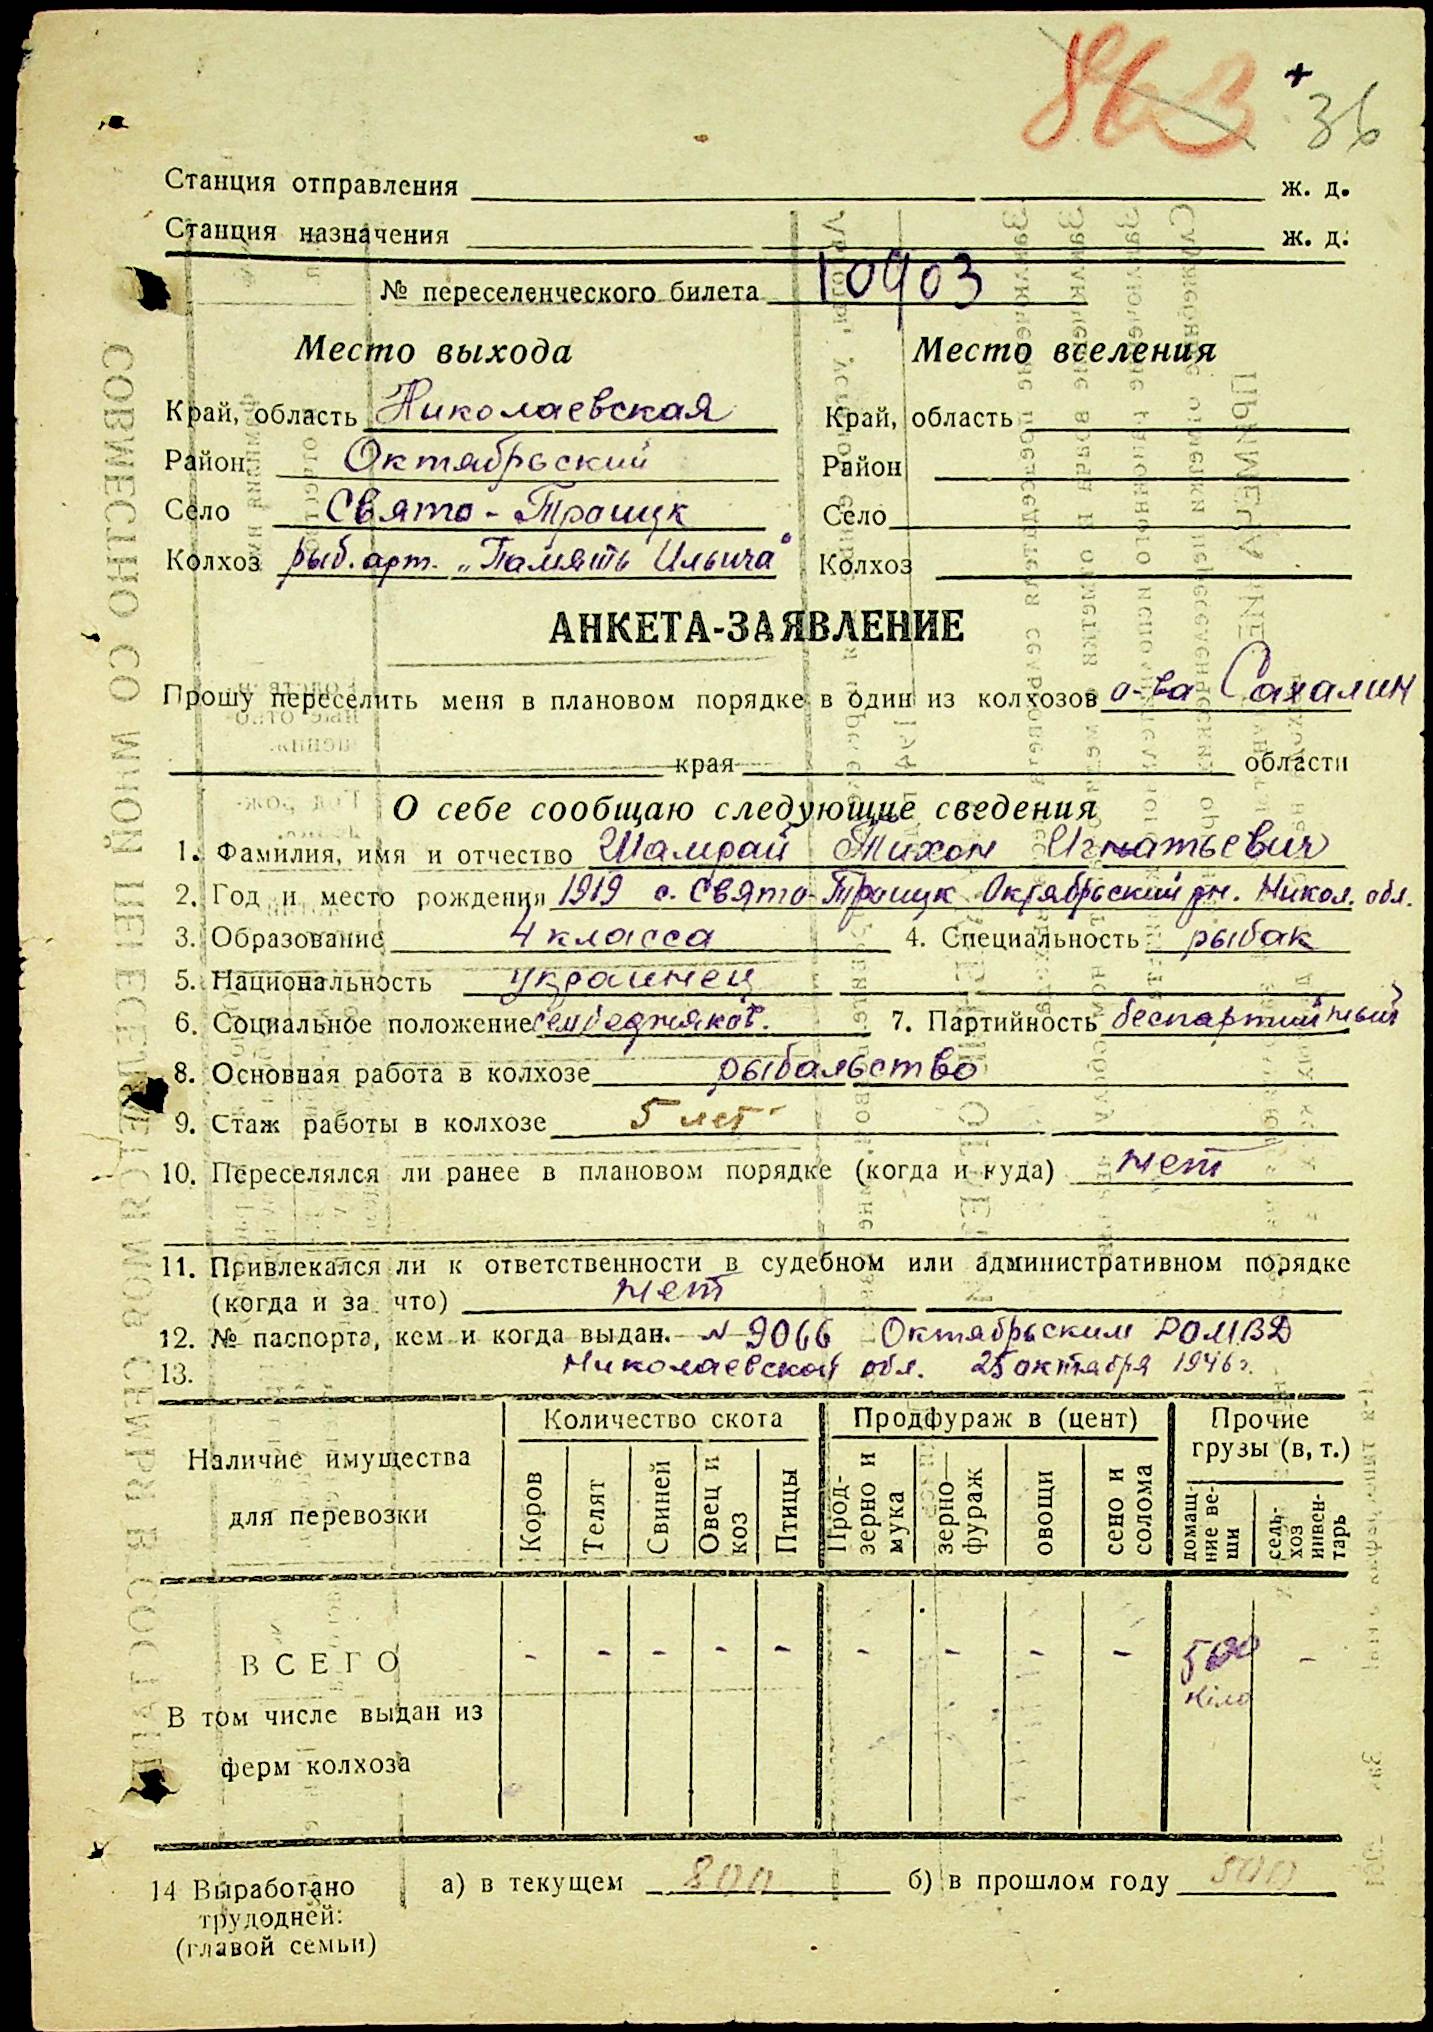 863 + 36
Станция отправления ж. д.
Станция назначения ж. д.
№ переселенческого билета 10903
Место выхода Место вселения
Край, область Николаевская Край, область
Район Октябрьский Район
Село Свято-Троицк Село
Колхоз рыб. арт. „Память Ильича" Колхоз
АНКЕТА-ЗАЯВЛЕНИЕ
Прошу переселить меня в плановом порядке в один из колхозов о-ва Сахалин
края области
О себе сообщаю следующие сведения
1. Фамилия, имя и отчество Шамрай Тихон Игнатьевич
2. Год и место рождения 1919 с. Свято-Троицк Октябрьский рн. Никол. обл.
3. Образование 4 класса 4. Специальность рыбак
5. Национальность украинец
6. Социальное положение 7. Партийность беспартийный
8. Основная работа в колхозе рыбальство
9. Стаж работы в колхозе 5 лет
10. Переселялся ли ранее в плановом порядке (когда и куда) нет
11. Привлекался ли к ответственности в судебном или административном порядке
(когда и за что) нет
12. № паспорта, кем и когда выдан. № 9066 Октябрьским РОМВД
13. Николаевской обл. 25 октября 1946 г.
Наличие имущества для перевозки
Количество скота Продфураж в (цент) Прочие грузы (в, т.)
Коров Телят Свиней Овец и коз Птицы Прод-зерно и мука зерно-фураж овощи сено и солома домаш-ние ве-щи сель-хоз инвен-тарь
ВСЕГО - - - - - - - - - 500 кіло -
В том числе выдан из
ферм колхоза
14 Выработано а) в текущем 800 б) в прошлом году 500
трудодней:
(главой семьи)